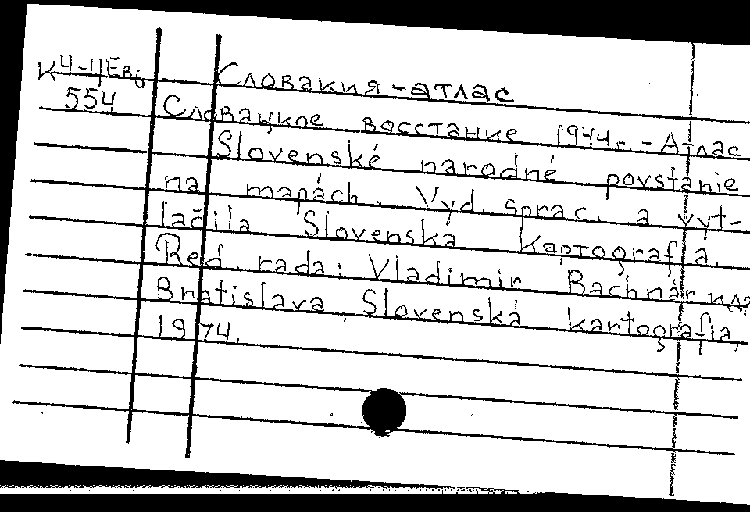 К4-4Ев.
554
Словакия-атлас
Словацкое восстание 1944г.-Атлас
Slovenské narodné povstanie
na mapách. Vyd. sprac. a vyt-
lačila Slovenská Kартоgrafia.
Red. rada: Vladimir Bachnár и др
Bratislava Slovenská kartografia,
1974.